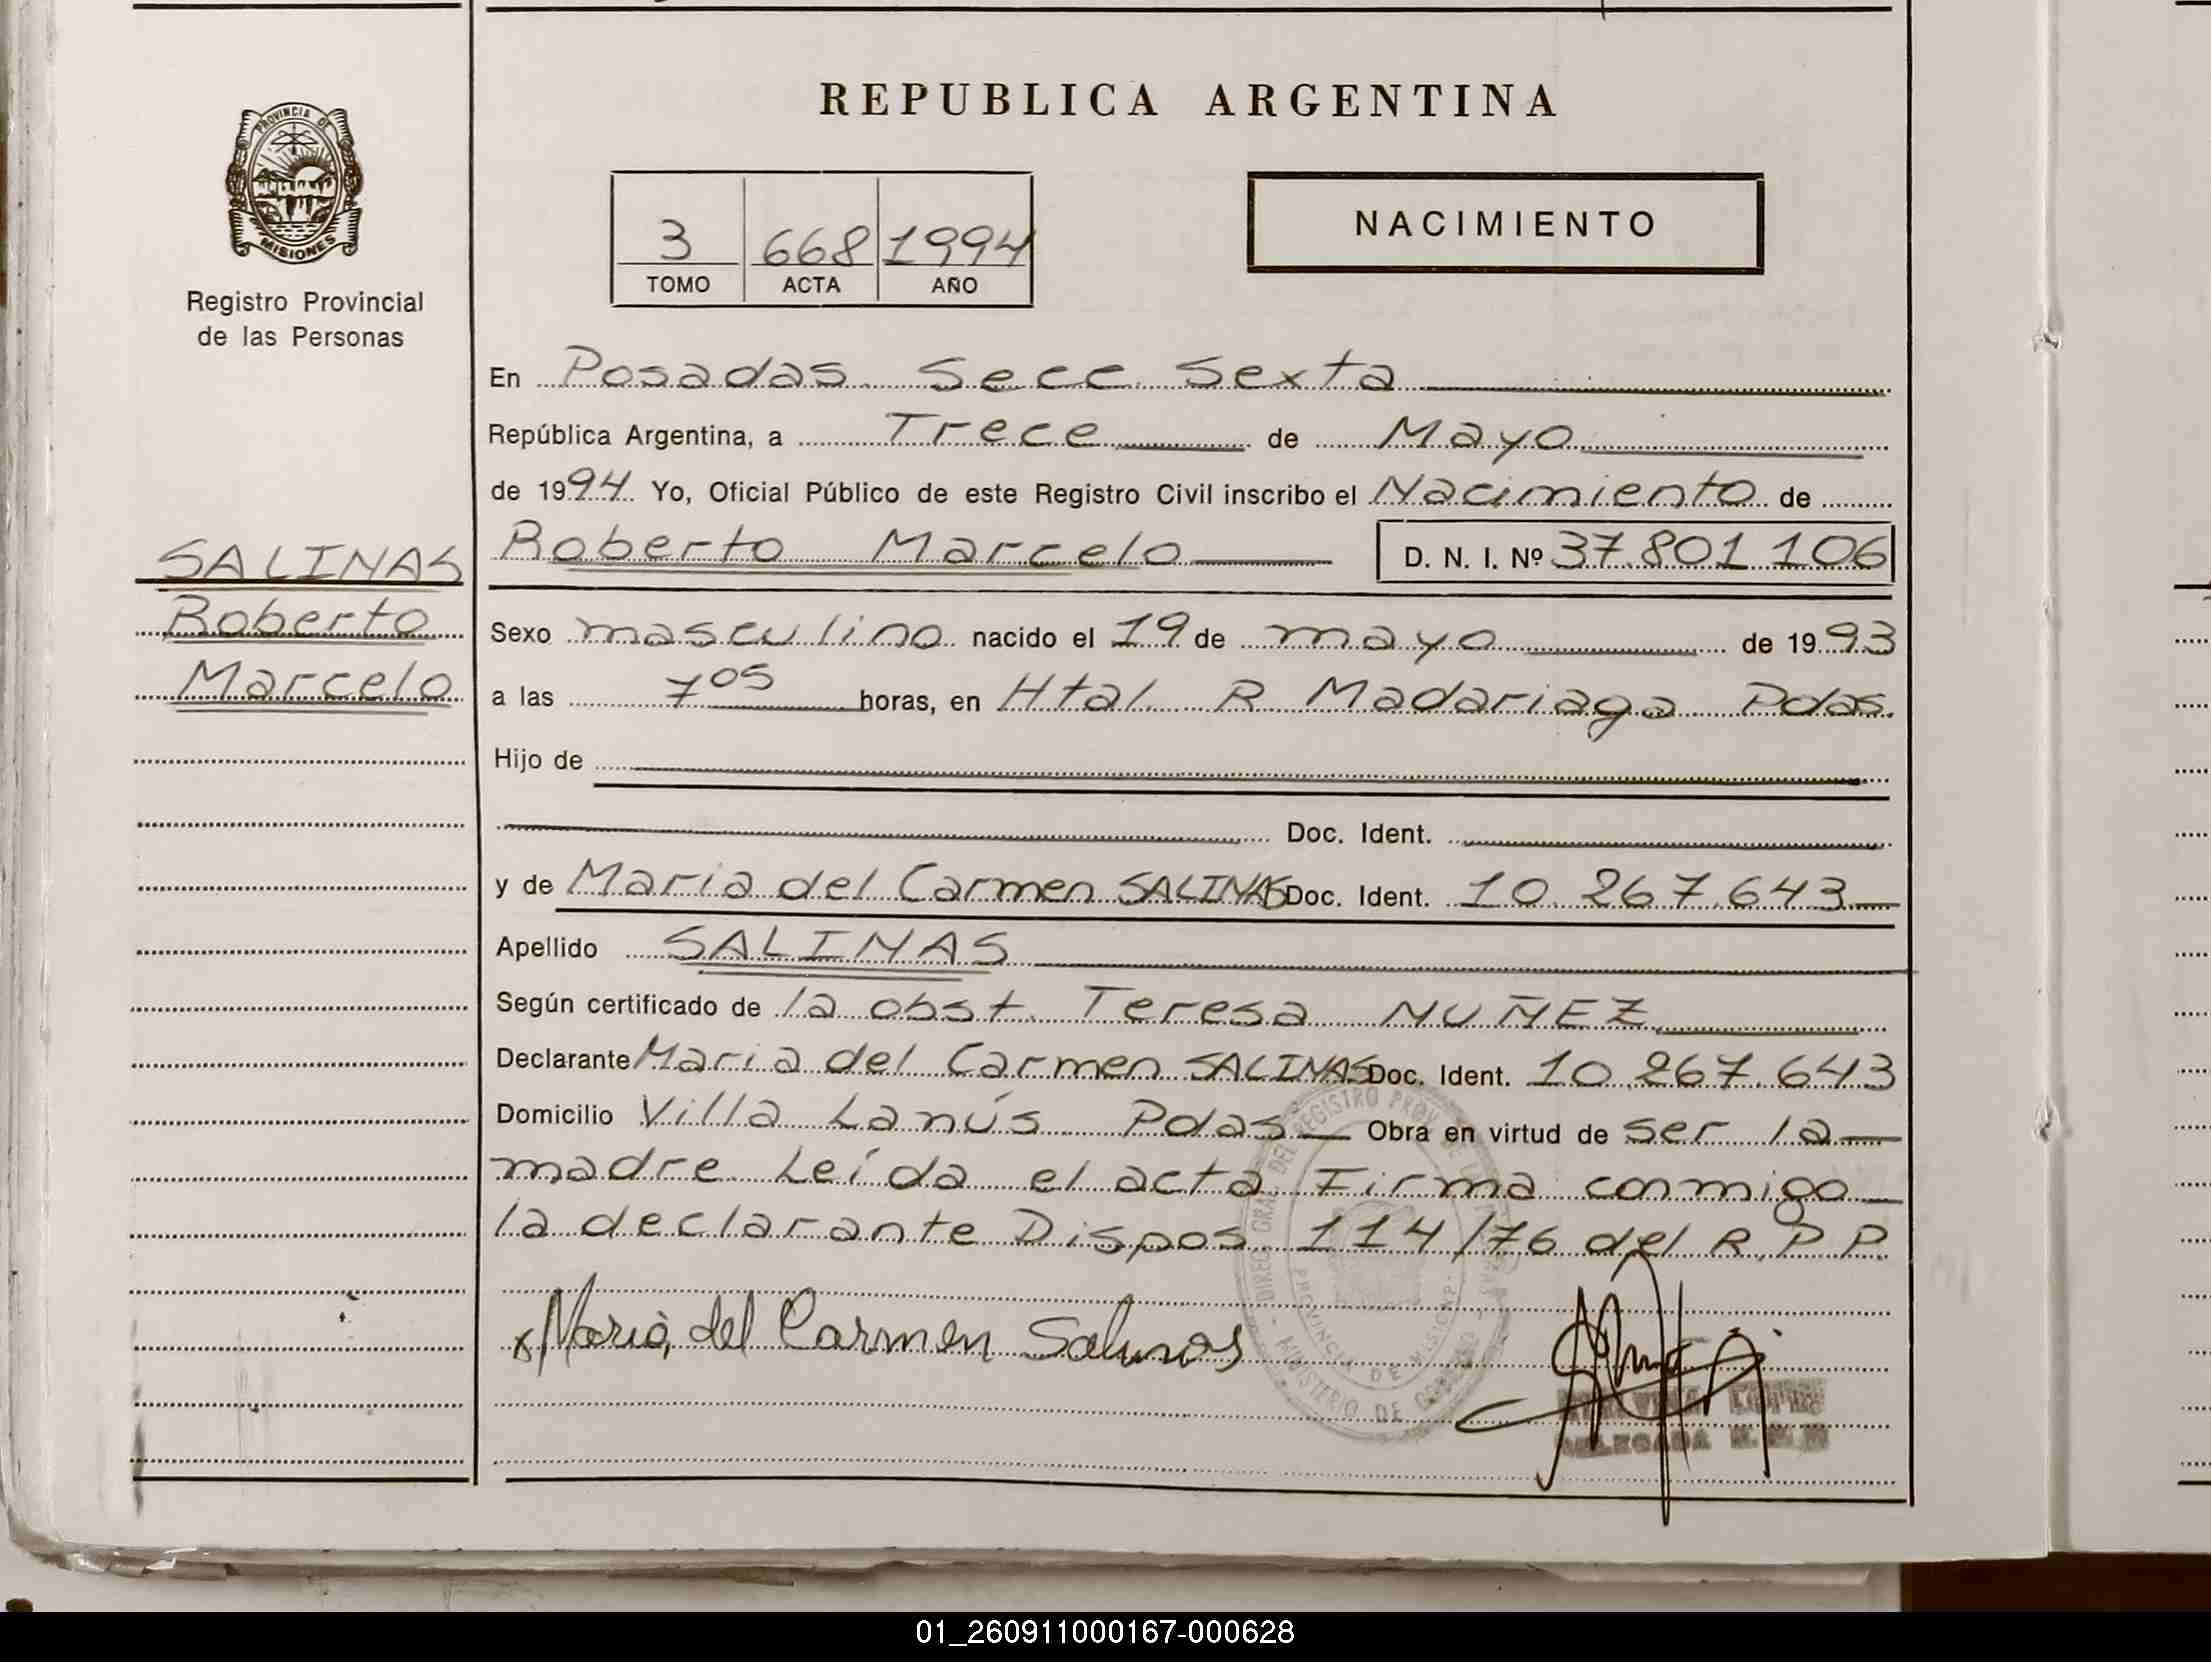 REPUBLICA ARGENTINA
PROVINCIA DE
MISIONES
Registro Provincial
de las Personas
NACIMIENTO
3 668 1994
TOMO ACTA AÑO
En Posadas Secc Sexta
República Argentina, a Trece de Mayo
de 1994 Yo, Oficial Público de este Registro Civil inscribo el Nacimiento de
SALINAS
Roberto
Marcelo
Roberto Marcelo D. N. I. Nº 37.801.106
Sexo masculino nacido el 19 de mayo de 1993
a las 7 05 horas, en Htal. R Madariaga Pdas.
Hijo de
Doc. Ident.
y de Maria del Carmen SALINAS Doc. Ident. 10.267.643
Apellido SALINAS
Según certificado de la obst. Teresa NUÑEZ
Declarante Maria del Carmen SALINAS Doc. Ident. 10.267.643
Domicilio Villa Lanús Pdas Obra en virtud de ser la
madre. Leída el acta Firma conmigo
la declarante Dispos. 114/76 del R.P.P.
x Maria del Carmen Salinas
DIREC. GRAL. DEL REGISTRO PROV. DE LAS
MINISTERIO DE GOBIERNO
PROVINCIA DE MISIONES
DELEGADA
01_260911000167-000628